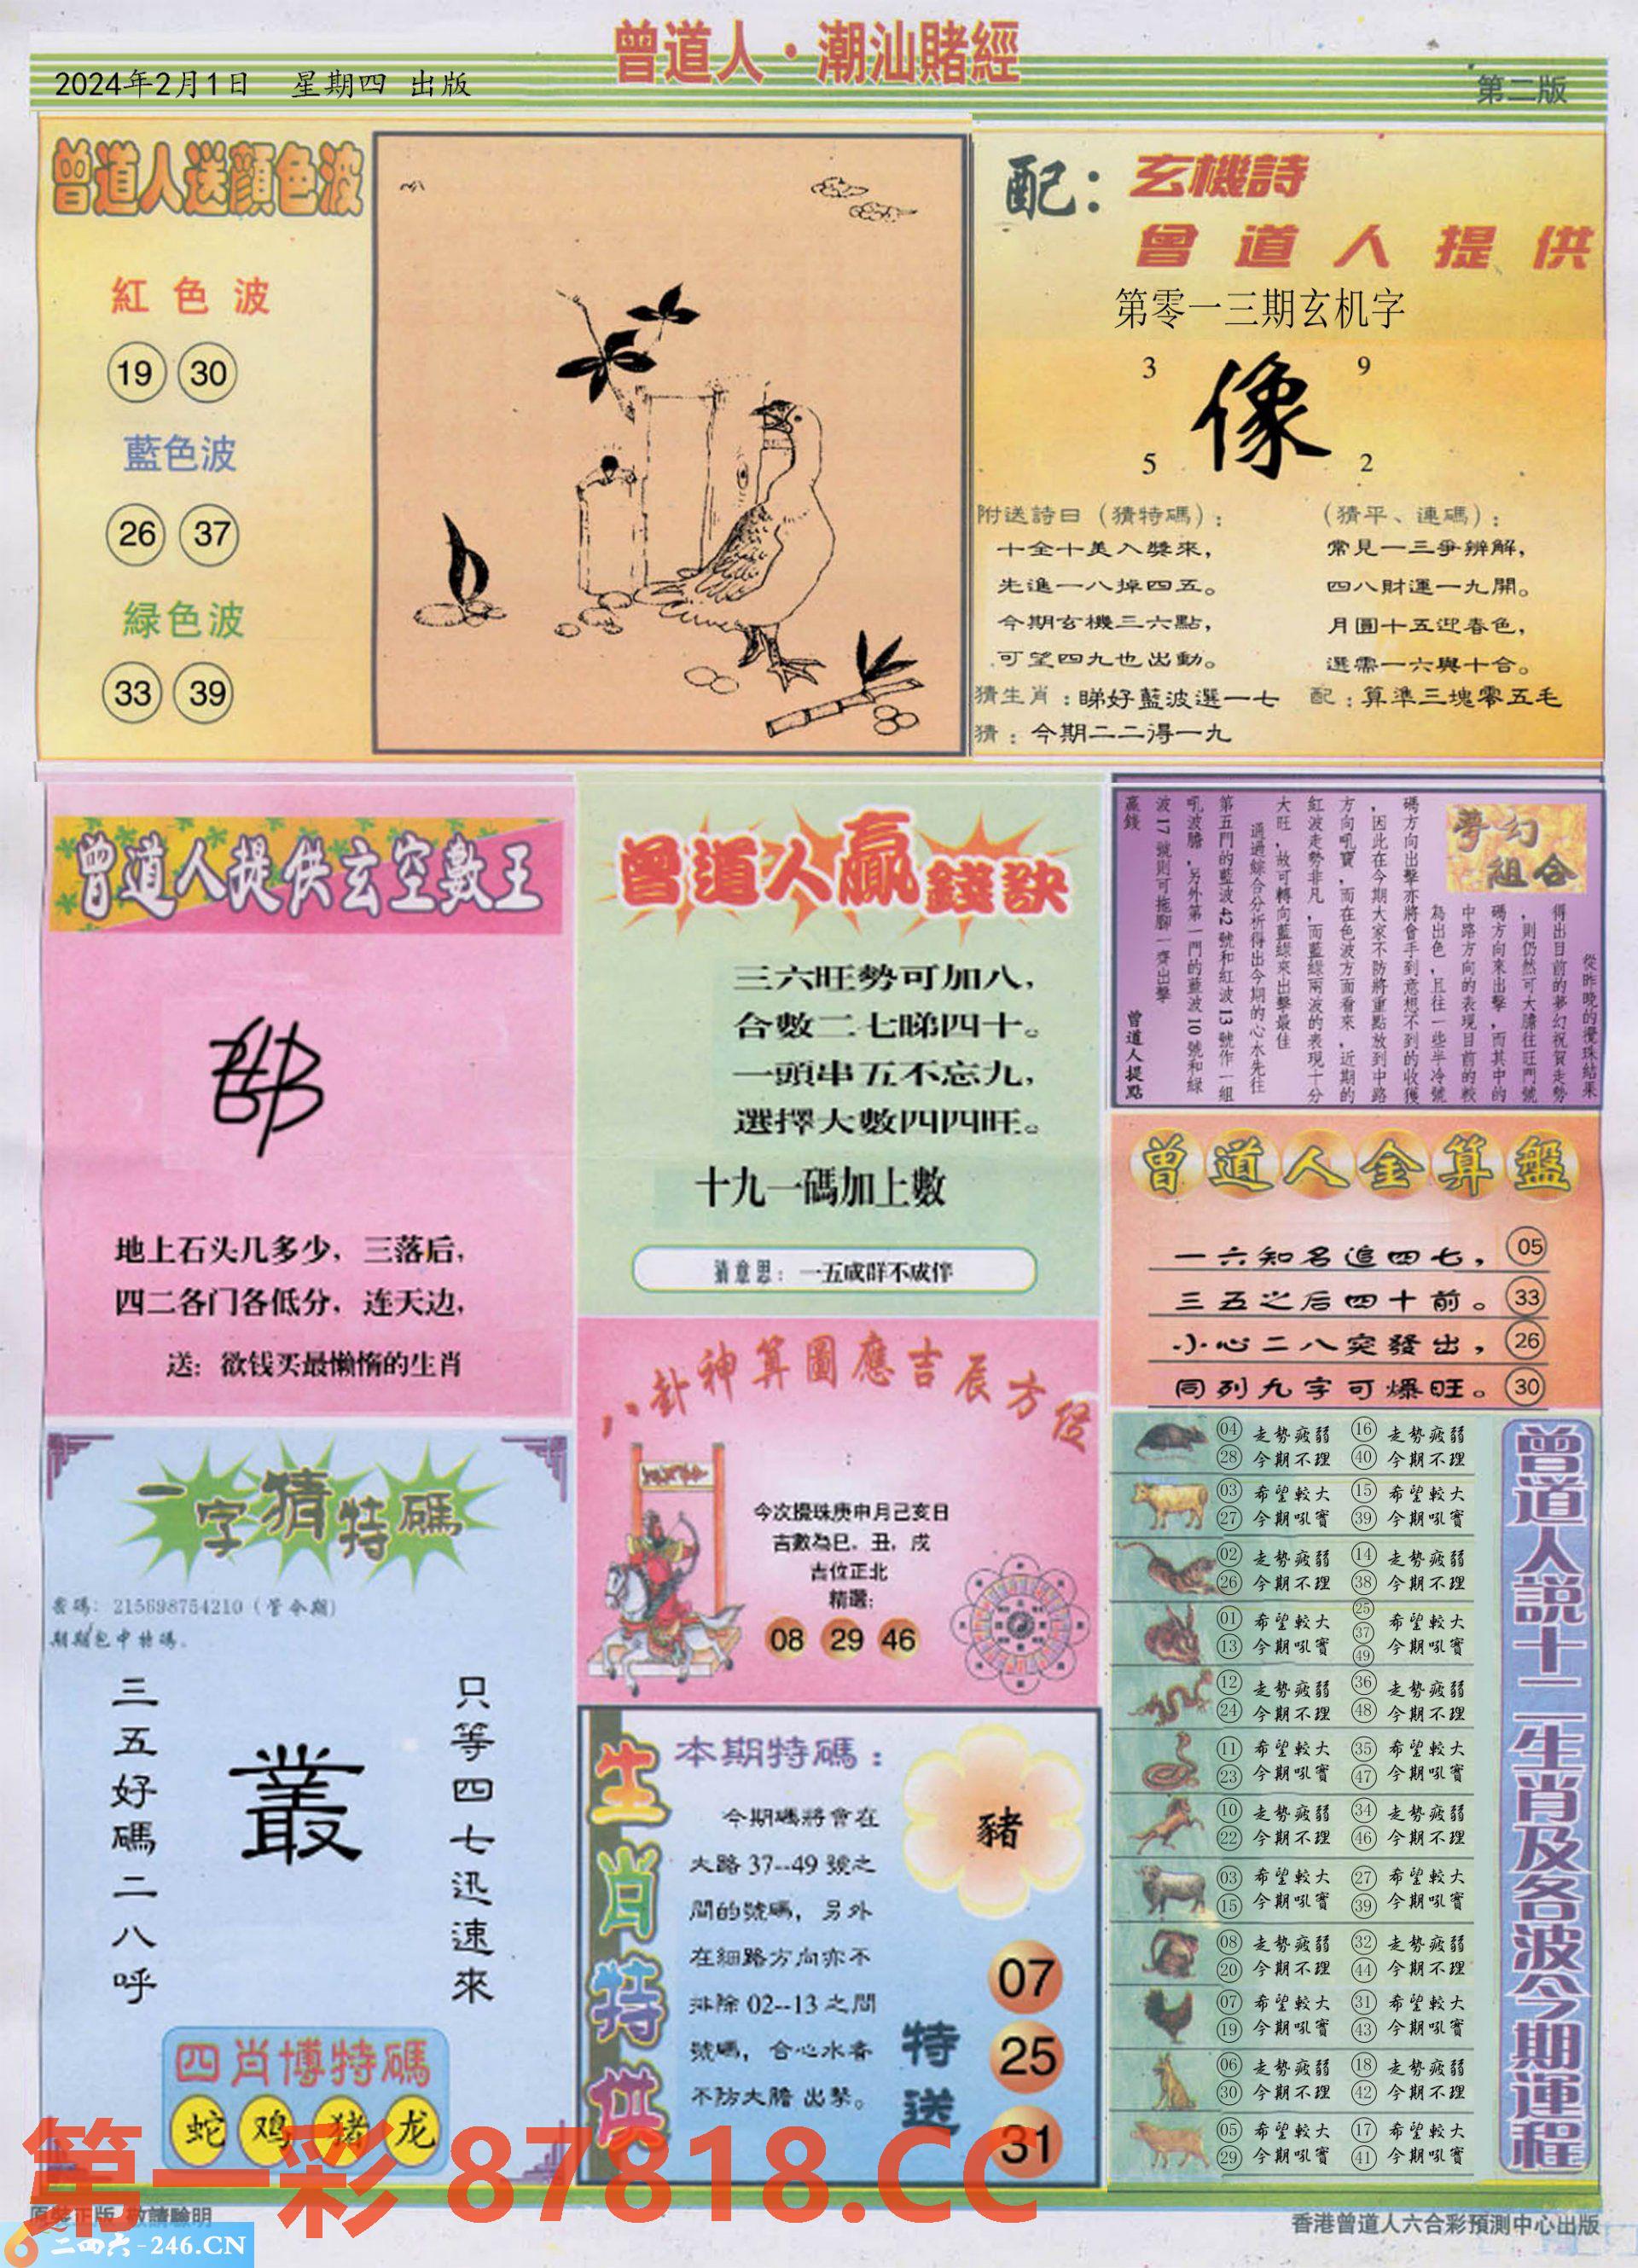 曾道人·潮汕賭經
2024年2月1日 星期四 出版
第二版
曾道人送顔色波
紅色波
19 30
藍色波
26 37
緑色波
33 39
配：玄機詩
曾道人提供
第零一三期玄机字
3 9
像
5 2
附送詩曰（猜特碼）：
十全十美入獎來，
先進一八掉四五。
今期玄機三六點，
可望四九也出動。
（猜平、連碼）：
常見一三爭辨解，
四八財運一九開。
月圓十五迎春色，
選需一六與十合。
猜生肖：睇好藍波選一七
配：算準三塊零五毛
猜：今期二二得一九
曾道人提供玄空數王
地上石头几多少，三落后，
四二各门各低分，连天边，
送：欲钱买最懒惰的生肖
曾道人贏錢訣
三六旺勢可加八，
合數二七睇四十。
一頭串五不忘九，
選擇大數四四旺。
十九一碼加上數
猜意思：一五成群不成伴
夢幻組合
從昨晚的攪珠結果
得出目前的夢幻祝賀走勢
，則仍然可大膽往旺門號
碼方向來出擊，而其中的
中路方向的表現目前的較
為出色，且往一些半冷號
碼方向出擊亦將會手到意想不到的收獲
，因此在今期大家不防將重點放到中路
方向吼寶，而在色波方面看來，近期的
紅波走勢非凡，而藍綠兩波的表現十分
大旺，故可轉向藍綠來出擊最佳
通過綜合分析得出今期的心水先往
第五門的藍波42號和紅波13號作一組
吼波膽，另外第一門的藍波10號和綠
波17號則可拖腳一齊出擊
贏錢 曾道人提點
曾道人金算盤
一六知名追四七， 05
三五之后四十前。 33
小心二八突發出， 26
同列九字可爆旺。 30
八卦神算圖應吉辰方位
今次攪珠庚申月己亥日
吉數為巳，丑，戌
吉位正北
精選：
08 29 46
一字猜特碼
密碼：215698754210（管今期）
期期包中特碼。
只等四七迅速來
叢
三五好碼二八呼
四肖博特碼
蛇 鸡 猪 龙
生肖特供
本期特碼：
今期碼將會在
大路37--49號之
間的號碼，另外
在細路方向亦不
排除02--13之間
號碼，合心水者
不防大膽出擊。
豬
特送
07
25
31
曾道人說十二生肖及各波今期運程
04 走勢疲弱 16 走勢疲弱
28 今期不理 40 今期不理
03 希望較大 15 希望較大
27 今期吼實 39 今期吼實
02 走勢疲弱 14 走勢疲弱
26 今期不理 38 今期不理
01 希望較大 25 37 希望較大
13 今期吼實 49 今期吼實
12 走勢疲弱 36 走勢疲弱
24 今期不理 48 今期不理
11 希望較大 35 希望較大
23 今期吼實 47 今期吼實
10 走勢疲弱 34 走勢疲弱
22 今期不理 46 今期不理
03 希望較大 27 希望較大
15 今期吼實 39 今期吼實
08 走勢疲弱 32 走勢疲弱
20 今期不理 44 今期不理
07 希望較大 31 希望較大
19 今期吼實 43 今期吼實
06 走勢疲弱 18 走勢疲弱
30 今期不理 42 今期不理
05 希望較大 17 希望較大
29 今期吼實 41 今期吼實
第一彩 87818.CC
原裝正版 敬請驗明
二四六-246.CN
香港曾道人六合彩預測中心出版